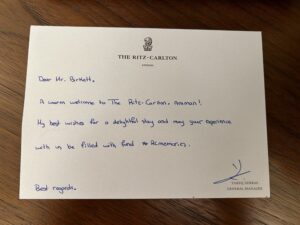 THE RITZ-CARLTON
AMMAN
Dear Mr. Birkett,
A warm welcome to The Ritz-Carlton, Amman!
My best wishes for a delightful stay and may your experience
with us be filled with fond memories.
Best regards,
GENERAL MANAGER